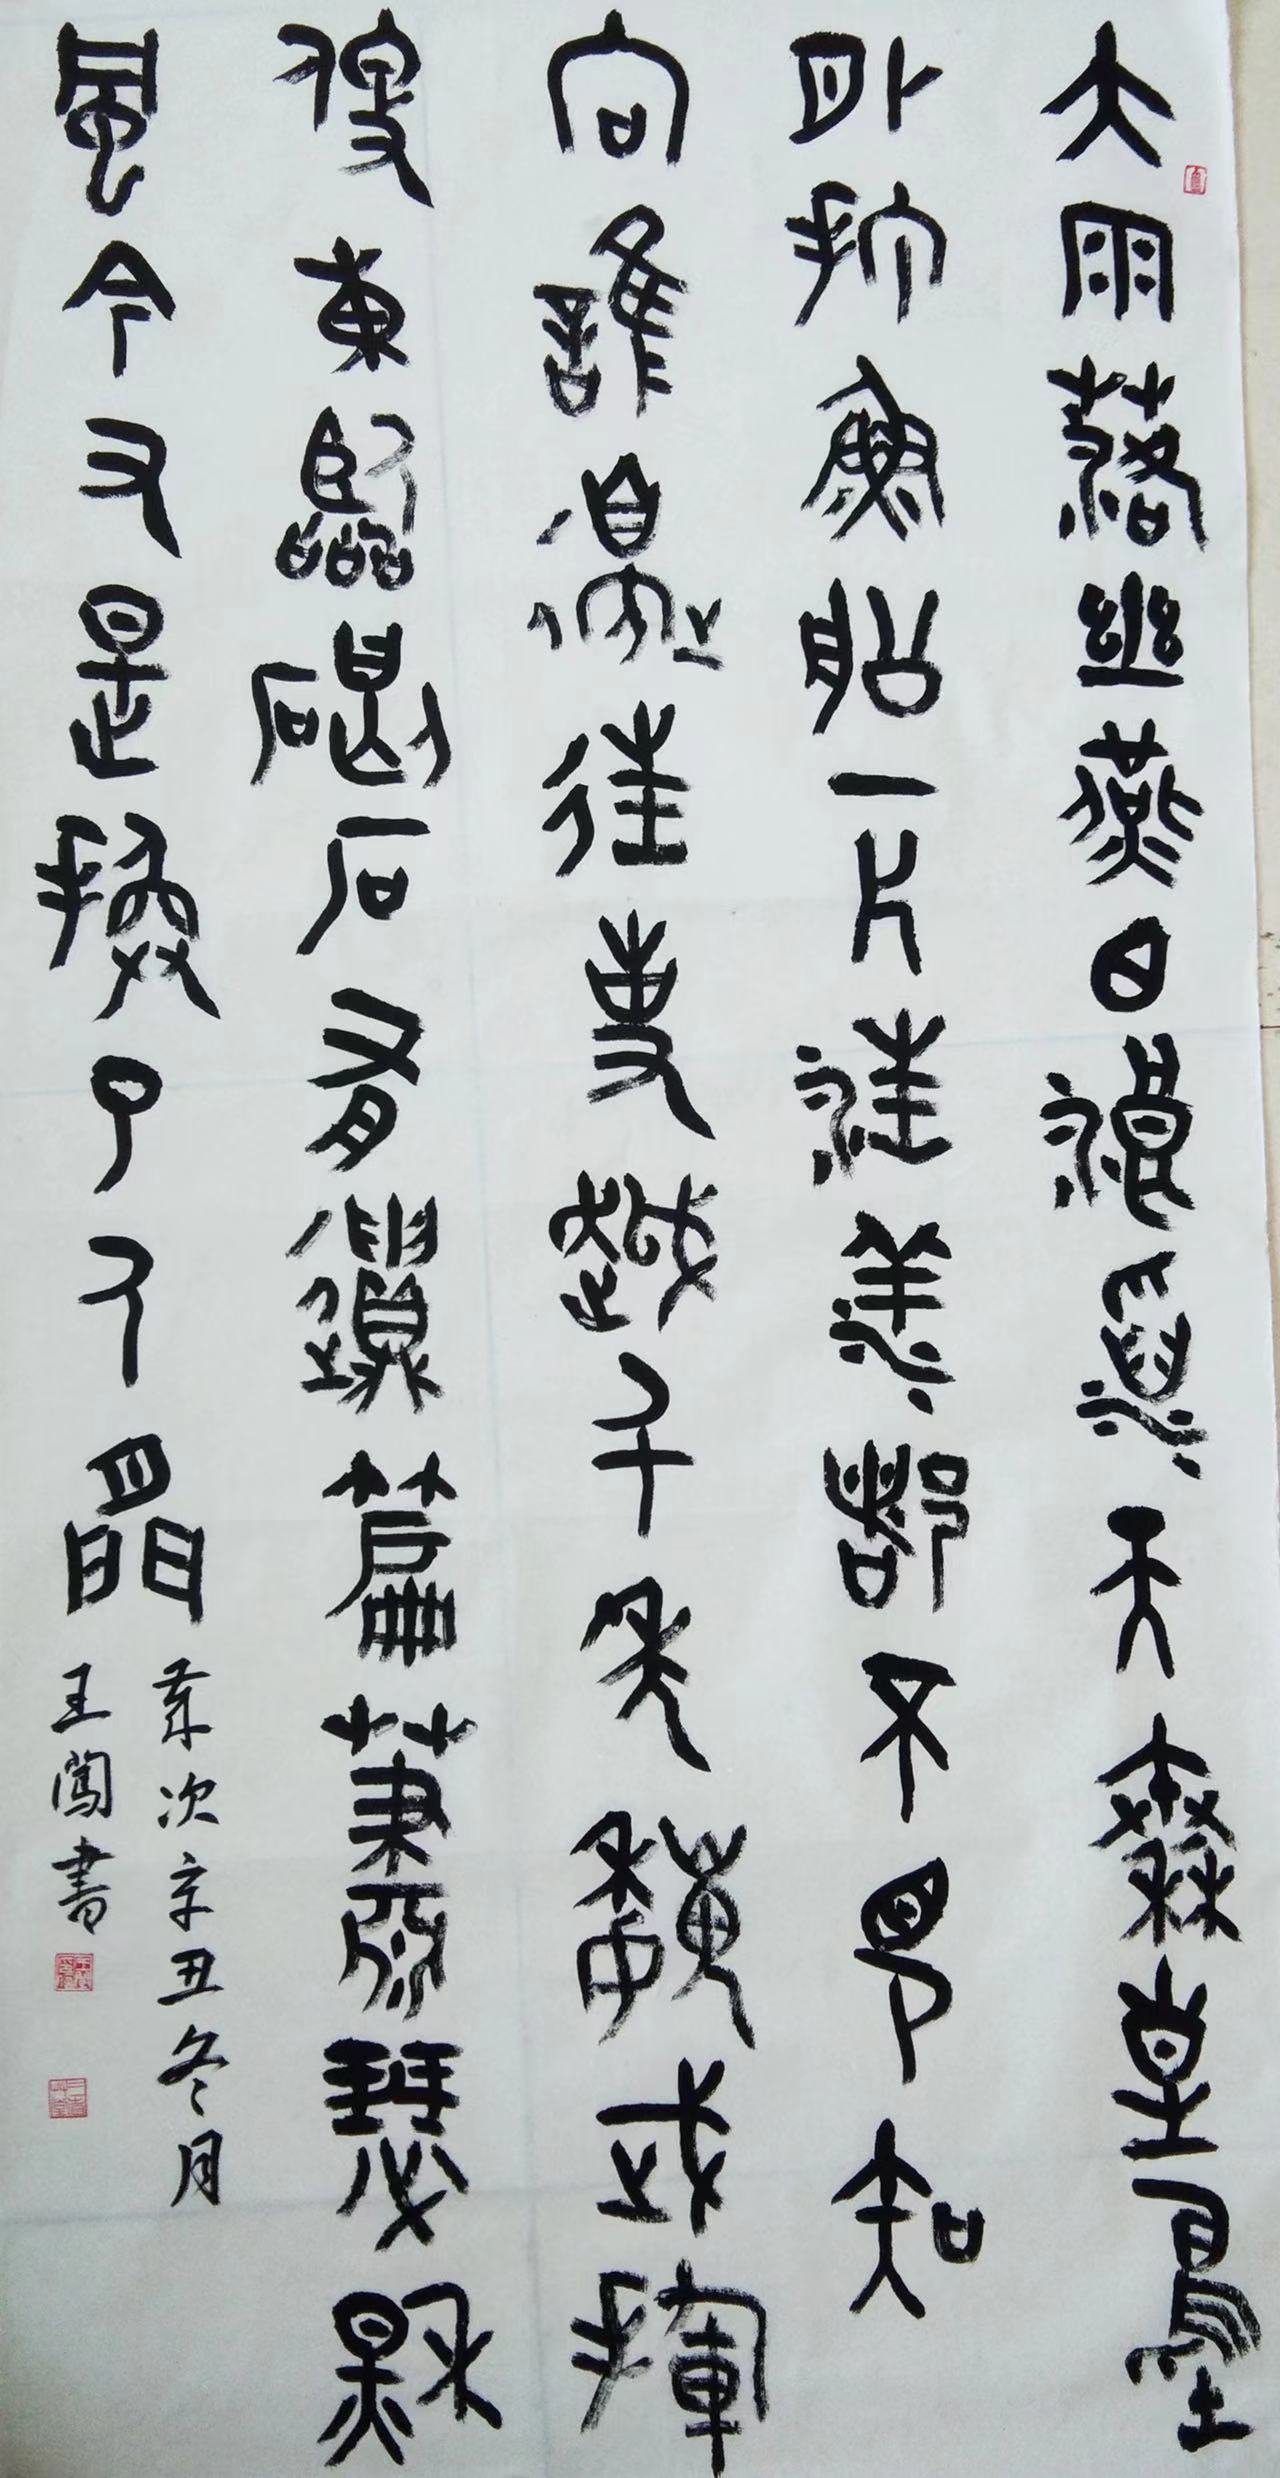 大雨落幽燕白浪滔天秦皇島
外打魚船一片汪洋都不見知
向誰邊往事越千年魏武揮
鞭東臨碣石有遺篇蕭瑟秋
風今又是換了人間
歲次辛丑冬月
王闖書